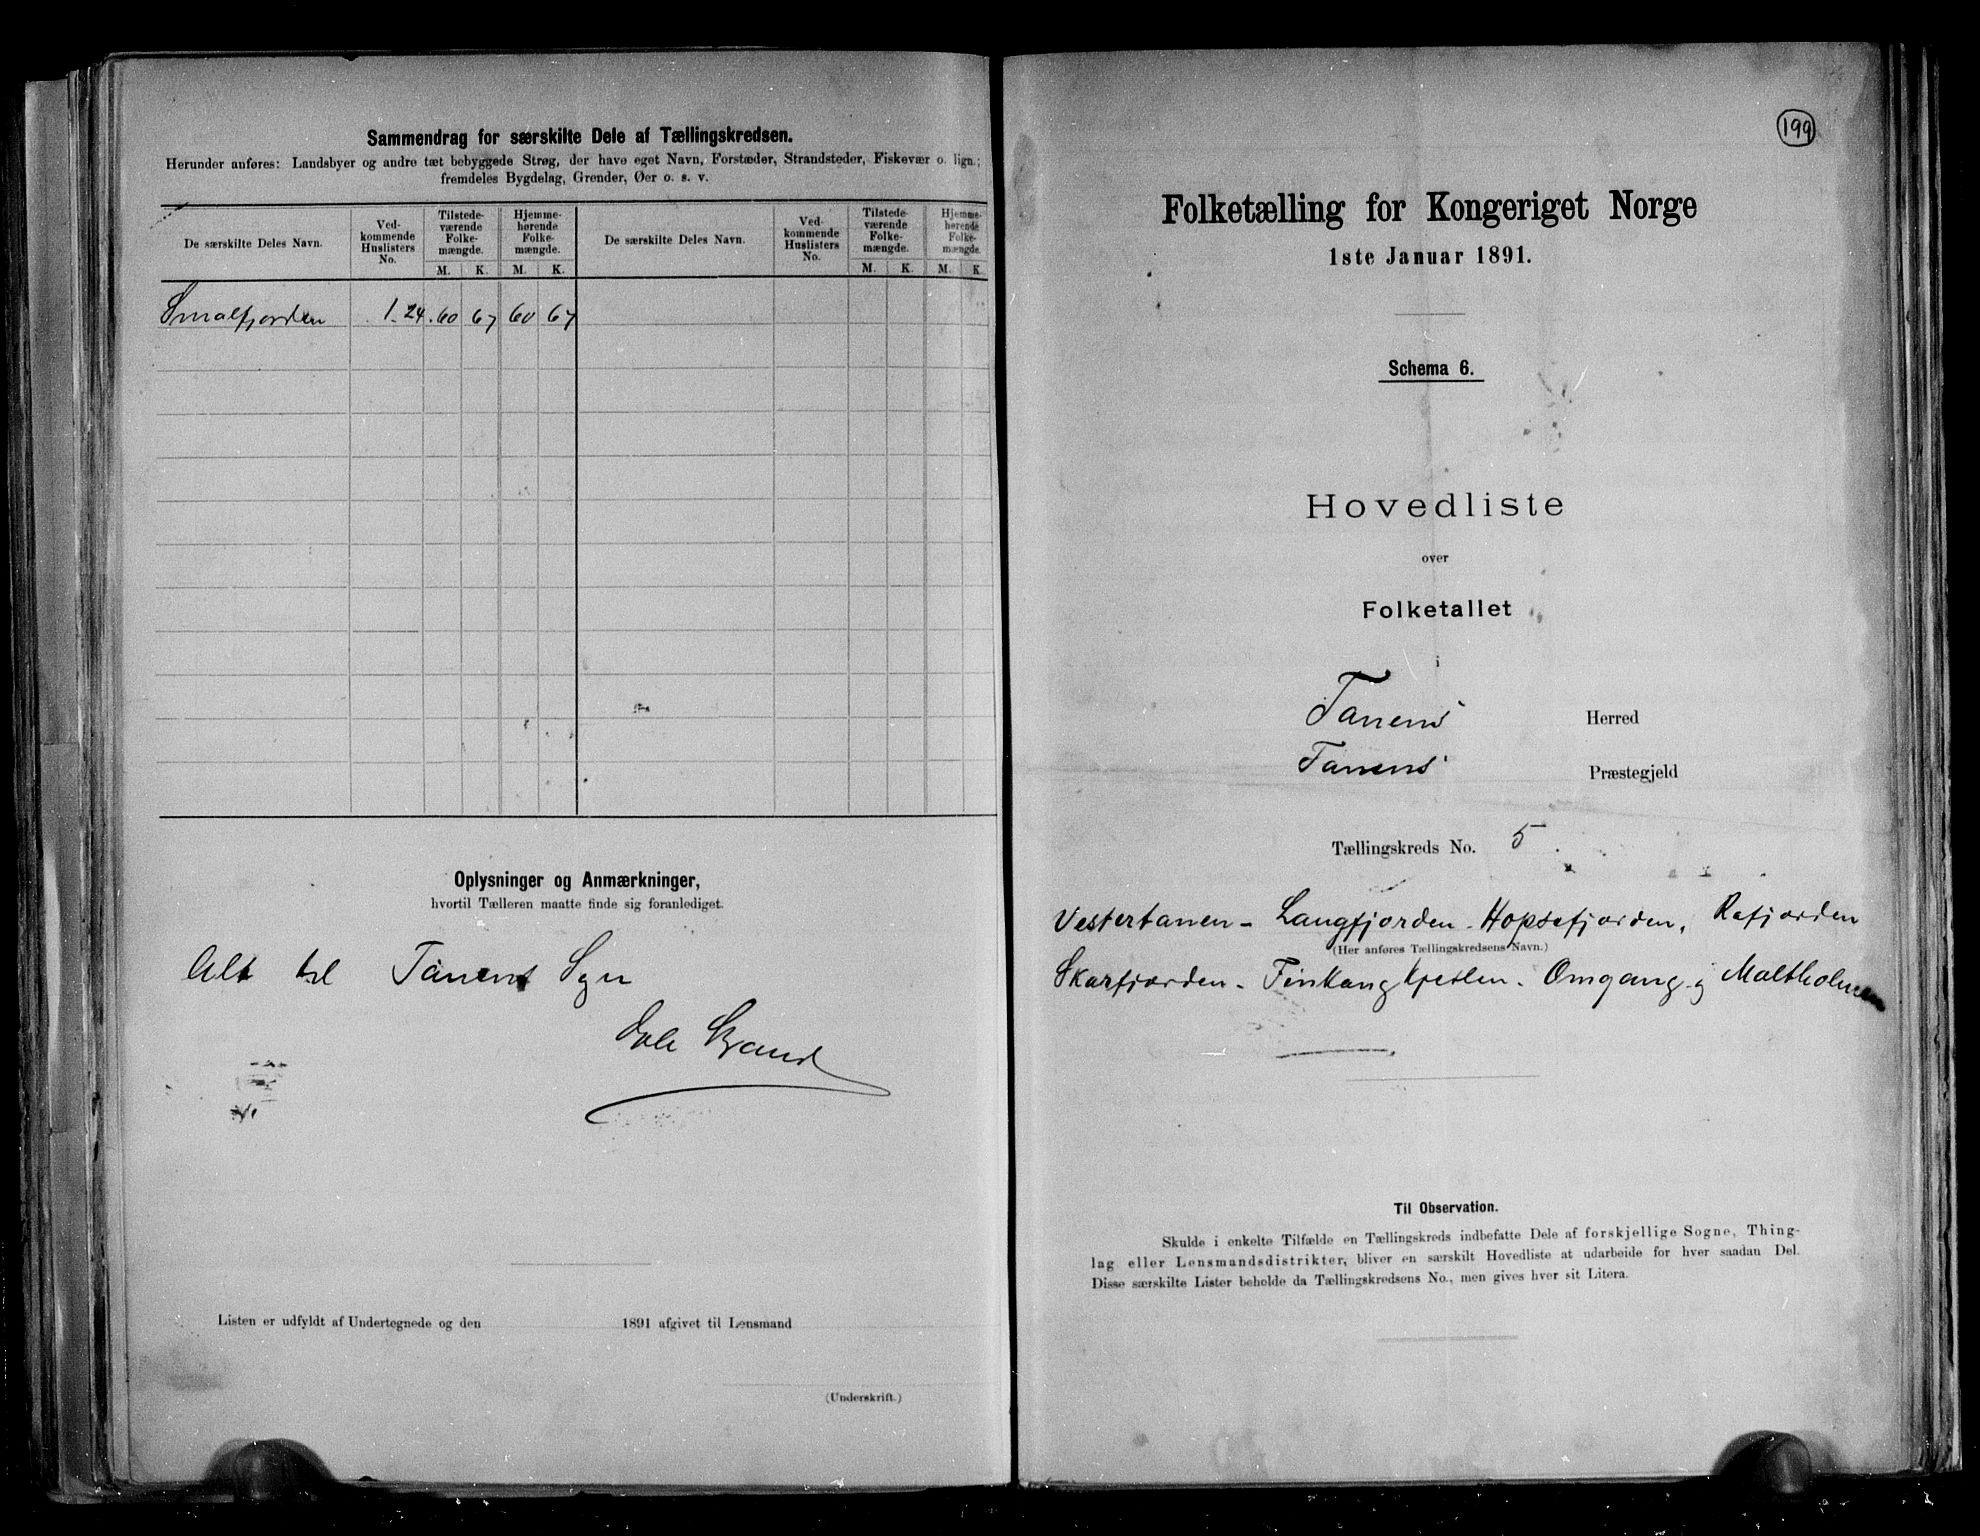 Sammendrag for særskilte Dele af Tællingskredsen.
Herunder anføres: Landsbyer og andre tæt bebyggede Strøg, der have eget Navn, Forstæder, Strandsteder, Fiskevær o. lign.;
fremdeles Bygdelag, Grender, Øer o. s. v.
De særskilte Deles Navn. Ved-kommende Huslisters No. Tilstede-værende Folke-mængde. Hjemme-hørende Folke-mængde. De særskilte Deles Navn. Ved-kommende Huslisters No. Tilstede-værende Folke-mængde. Hjemme-hørende Folke-mængde.
M. K. M. K. M. K. M. K.
Smalfjorden 1-24 60 67 60 67
Oplysninger og Anmærkninger,
hvortil Tælleren maatte finde sig foranlediget.
Alt til Tanens Sogn
Listen er udfyldt af Undertegnede og den 1891 afgivet til Lensmand
(Underskrift.)
199
Folketælling for Kongeriget Norge
1ste Januar 1891.
Schema 6.
Hovedliste
over
Folketallet
i
Tanens Herred
Tanens Præstegjeld
Tællingskreds No. 5.
Vestertanen - Langfjorden - Hopsefjorden, Rafjorden
(Her anføres Tællingskredsens Navn.)
Skarfjorden - Finkongkjeilen - Omgang og Maltholmen
Til Observation.
Skulde i enkelte Tilfælde en Tællingskreds indbefatte Dele af forskjellige Sogne, Thing-
lag eller Lensmandsdistrikter, bliver en særskilt Hovedliste at udarbeide for hver saadan Del.
Disse særskilte Lister beholde da Tællingskredsens No., men gives hver sit Litera.